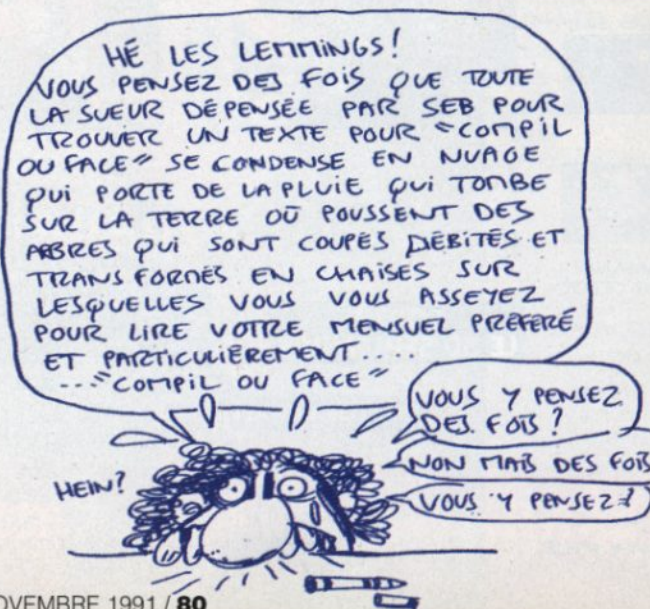 HÉ LES LEMMINGS!
VOUS PENSEZ DES FOIS QUE TOUTE
LA SUEUR DÉPENSÉE PAR SEB POUR
TROUVER UN TEXTE POUR "COMPIL
OU FACE" SE CONDENSE EN NUAGE
QUI PORTE DE LA PLUIE QUI TOMBE
SUR LA TERRE OÙ POUSSENT DES
ARBRES QUI SONT COUPÉS DÉBITÉS ET
TRANSFORMÉS EN CHAISES SUR
LESQUELLES VOUS VOUS ASSEYEZ
POUR LIRE VOTRE MENSUEL PRÉFÉRÉ
ET PARTICULIÈREMENT.....
..."COMPIL OU FACE"
VOUS Y PENSEZ
DES FOIS?
NON MAIS DES FOIS
VOUS Y PENSEZ?
HEIN?
OVEMBRE 1991 / 80